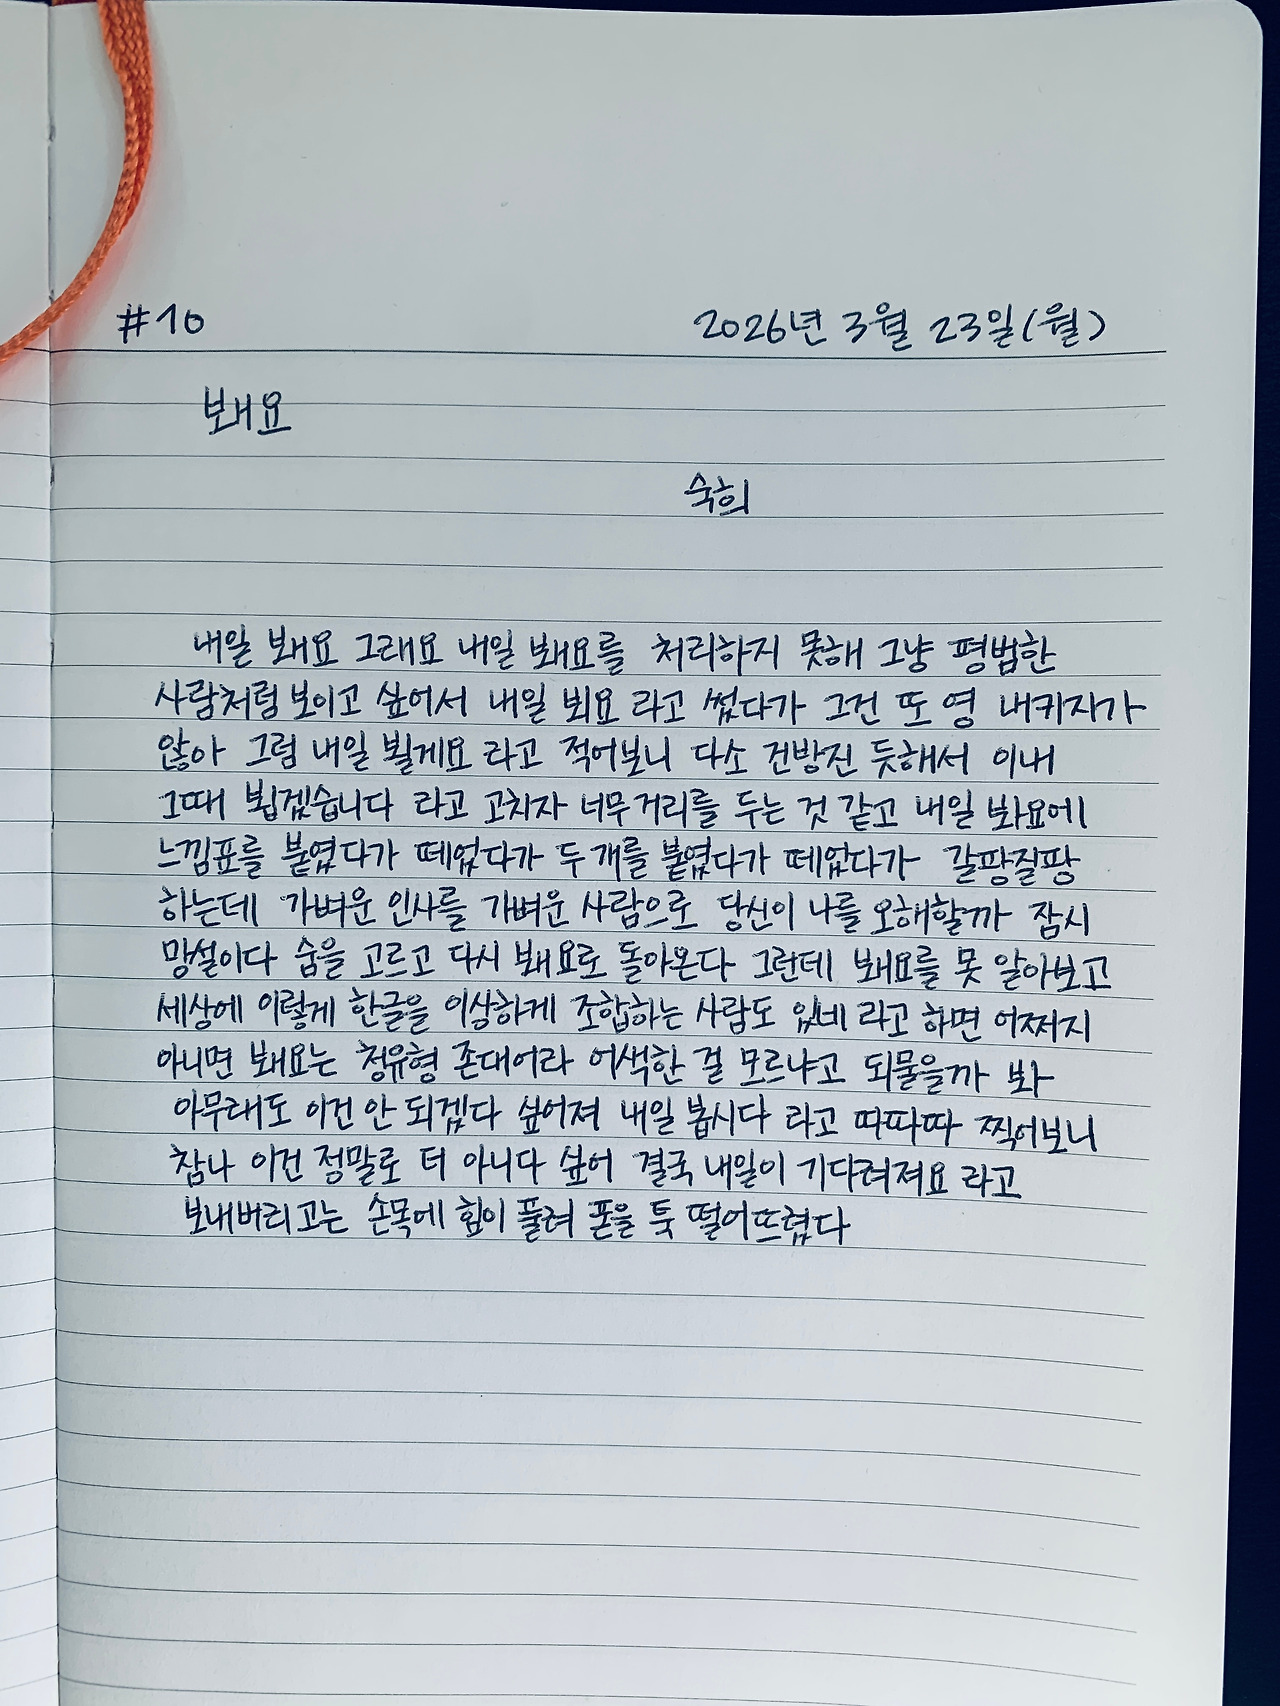 #10 2026년 3월 23일(월)
봬요
숙희
내일 봬요 그래요 내일 봬요를 처리하지 못해 그냥 평범한
사람처럼 보이고 싶어서 내일 뵈요 라고 썼다가 그건 또 영 내키지가
않아 그럼 내일 뵐게요 라고 적어보니 다소 건방진 듯해서 이내
그때 뵙겠습니다 라고 고치자 너무 거리를 두는 것 같고 내일 봐요에
느낌표를 붙였다가 떼었다가 두 개를 붙였다가 떼었다가 갈팡질팡
하는데 가벼운 인사를 가벼운 사람으로 당신이 나를 오해할까 잠시
망설이다 숨을 고르고 다시 봬요로 돌아온다 그런데 봬요를 못 알아보고
세상에 이렇게 한글을 이상하게 조합하는 사람도 있네 라고 하면 어쩌지
아니면 봬요는 청유형 존대어라 어색한 걸 모르냐고 되물을까 봐
아무래도 이건 안 되겠다 싶어져 내일 봅시다 라고 따따따 찍어보니
참나 이건 정말로 더 아니다 싶어 결국 내일이 기다려져요 라고
보내버리고는 손목에 힘이 풀려 폰을 툭 떨어뜨렸다